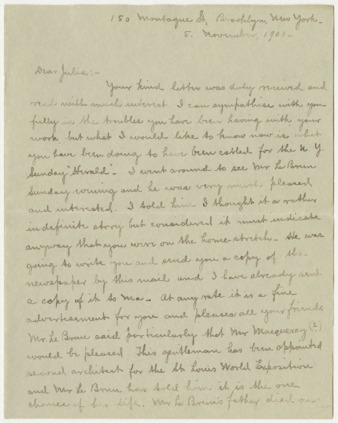 150 Montague St, Brooklyn, New York.
5. November, 1901.
Dear Julia:-
Your kind letter was duly received and
read with much interest. I can sympathise with you
fully in the troubles you have been having with your
work but what I would like to know now is what
you have been doing to have been cabled for the N Y
Sunday Herald. I went around to see Mr Le Brun
Sunday evening and he was very much pleased
and interested. I told him I thought it a rather
indefinite story but considered it must indicate
anyway that you were on the home stretch. He was
going to write you and send you a copy of the
newspaper by this mail and I have already sent
a copy of it to Ma. At any rate it is a fine
advertisement for you and pleases all your friends
Mr Le Brun said particularly that Mr (?)
would be pleased This gentleman has been appointed
second architect for the St Louis World Exposition
and Mr Le Brun has told him it is the one
chance of his life. Mr Le Brun's father died on